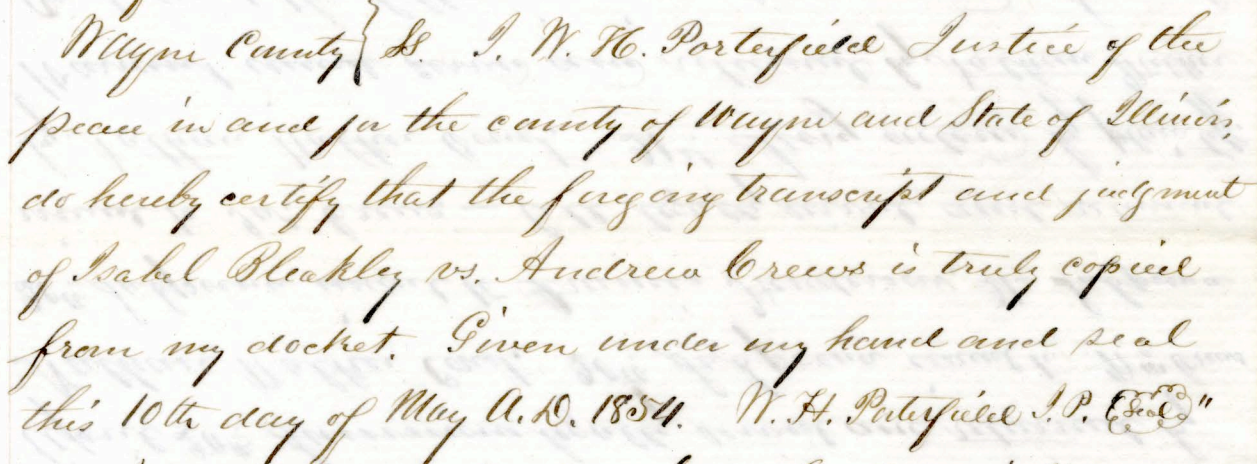 Wayne County } Ss. I. W. H. Porterfield Justice of the
peace in and for the county of Wayne and State of Illinois,
do hereby certify that the forgoing transcript and judgment
of Isabel Bleakley vs. Andrew Crews is truly copied
from my docket. Given under my hand and seal
this 10th day of May A.D. 1854. W. H. Porterfield J.P. (Seal)"